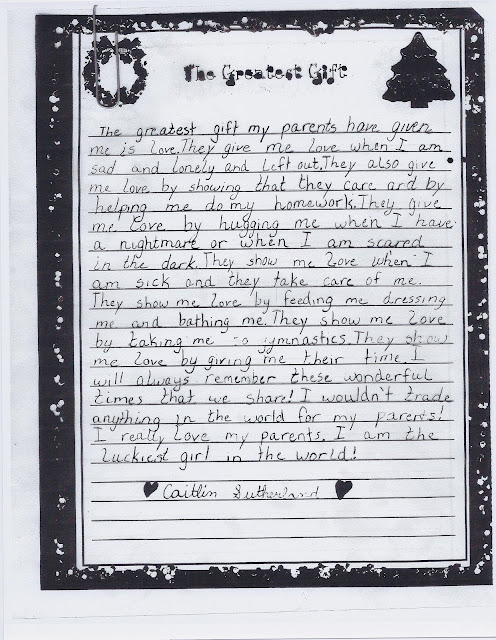 The Greatest Gift
The greatest gift my parents have given
me is love.They give me love when I am
sad and lonely and left out.They also give
me love by showing that they care and by
helping me do my homework.They give
me love by hugging me when I have
a nightmare or when I am scared
in the dark.They show me love when I
am sick and they take care of me.
They show me love by feeding me dressing
me and bathing me.They show me love
by taking me to gymnastics.They show
me love by giving me their time.I
will always remember these wonderful
times that we share! I wouldn't trade
anything in the world for my parents!
I really love my parents. I am the
luckiest girl in the world!
Caitlin Sutherland